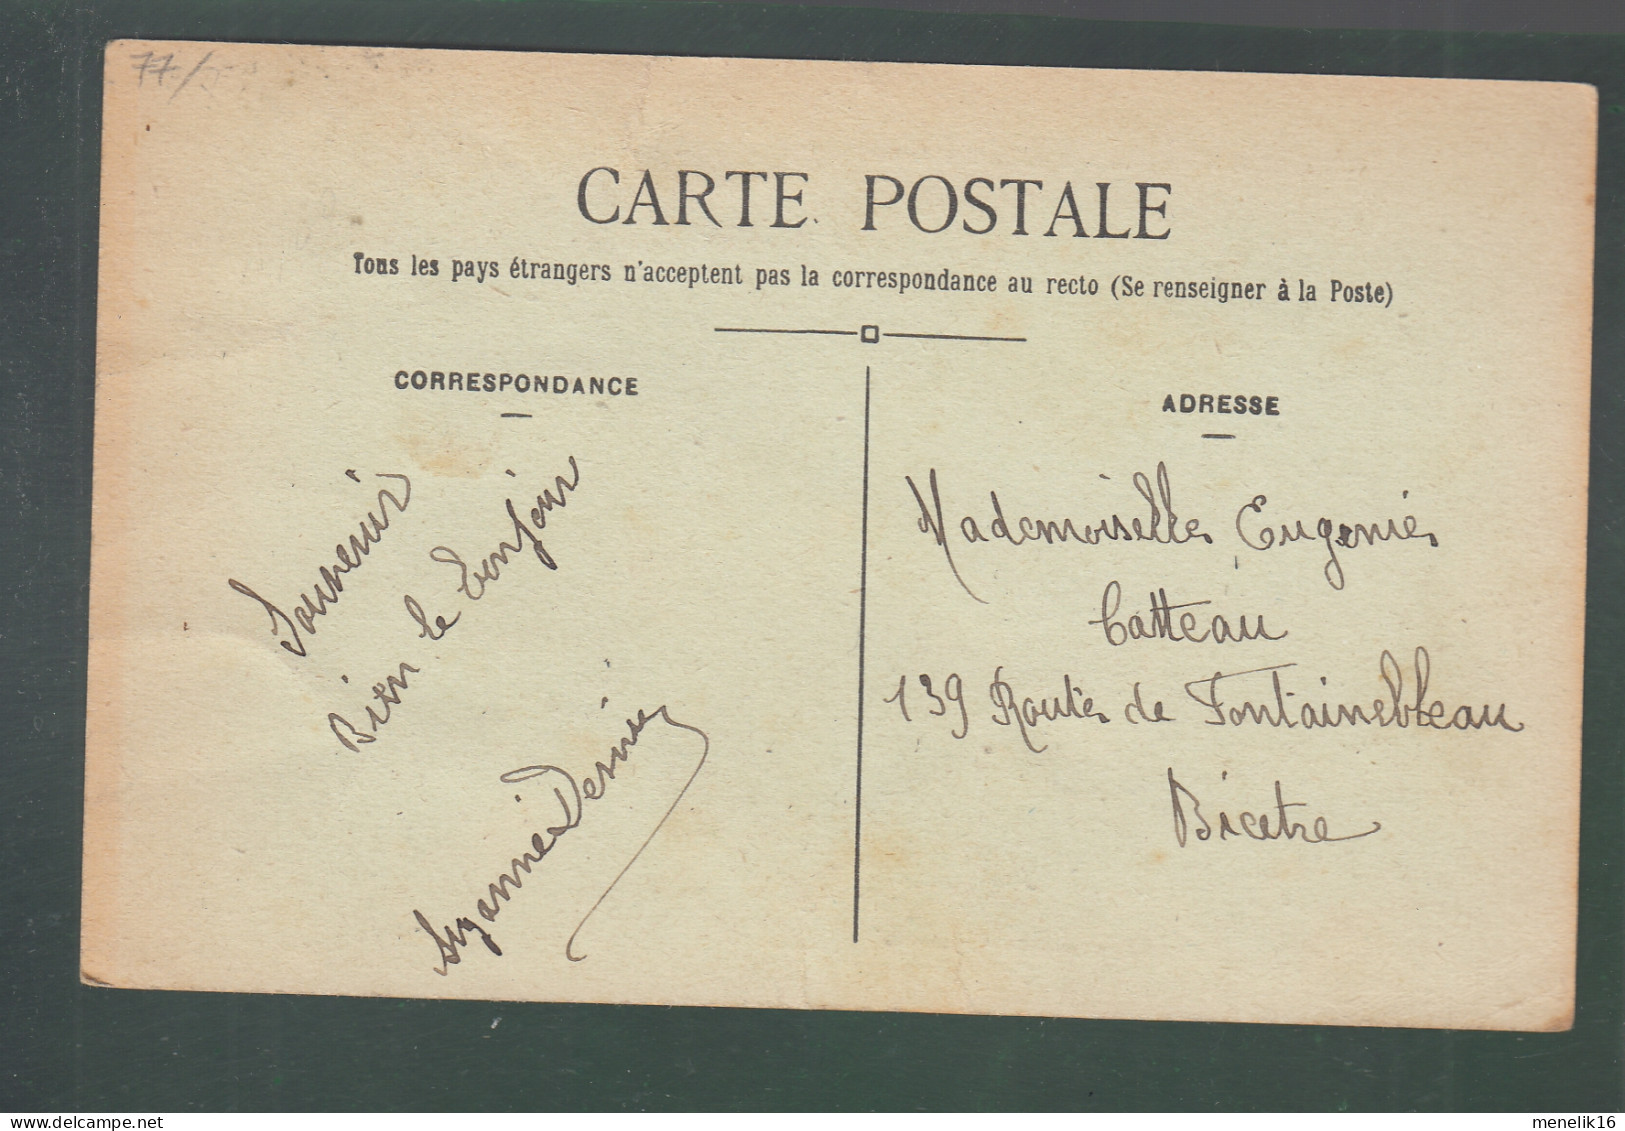 77/
CARTE POSTALE
Tous les pays étrangers n'acceptent pas la correspondance au recto (Se renseigner à la Poste)
CORRESPONDANCE
Souvenir
Bien le bonjour
Suzanne
ADRESSE
Mademoiselle Eugenie
Catteau
139 Route de Fontainebleau
Bicetre
menelik16